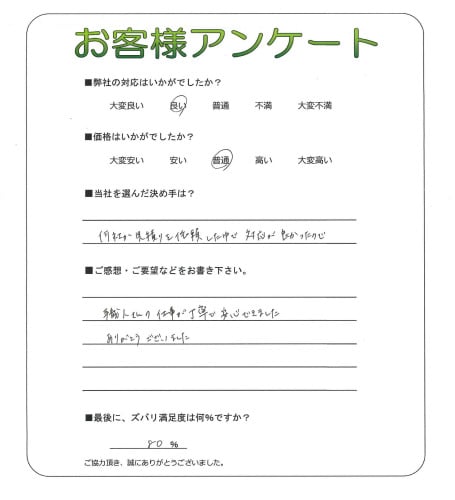 お客様アンケート
■弊社の対応はいかがでしたか？
大変良い 良い 普通 不満 大変不満
■価格はいかがでしたか？
大変安い 安い 普通 高い 大変高い
■当社を選んだ決め手は？
何社か見積りを依頼した中で 対応が良かったので
■ご感想・ご要望などをお書き下さい。
職人さんの仕事が丁寧で安心できました
ありがとうございました
■最後に、ズバリ満足度は何%ですか？
80 %
ご協力頂き、誠にありがとうございました。